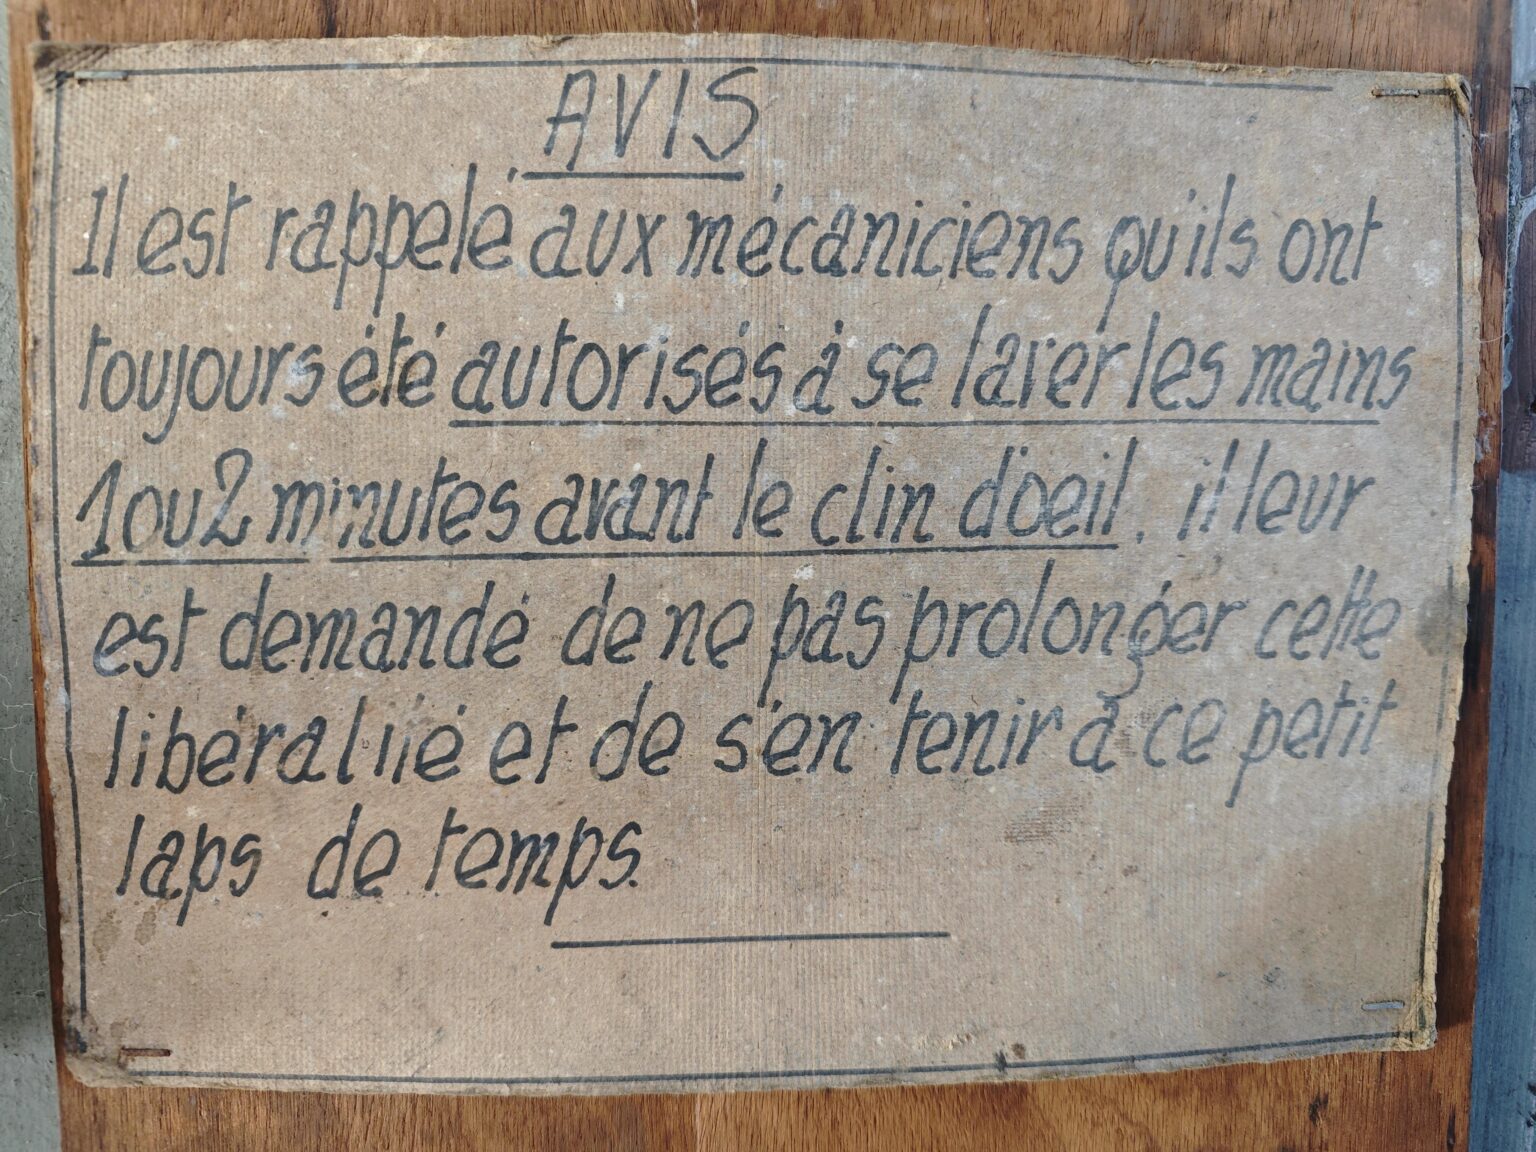 AVIS
Il est rappelé aux mécaniciens qu'ils ont
toujours été autorisés à se laver les mains
1 ou 2 minutes avant le clin d'oeil. il leur
est demandé de ne pas prolonger cette
libéralité et de s'en tenir à ce petit
laps de temps.